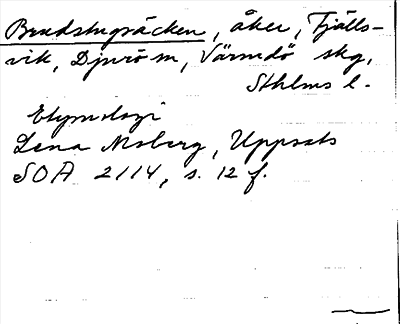 Brudstugräcken, åker, Fjälls-
vik, Djurö sn, Värmdö skg,
Sthlms l.
Etymologi
Lena Moberg, Uppsats
SOA 2114, s. 12 f.